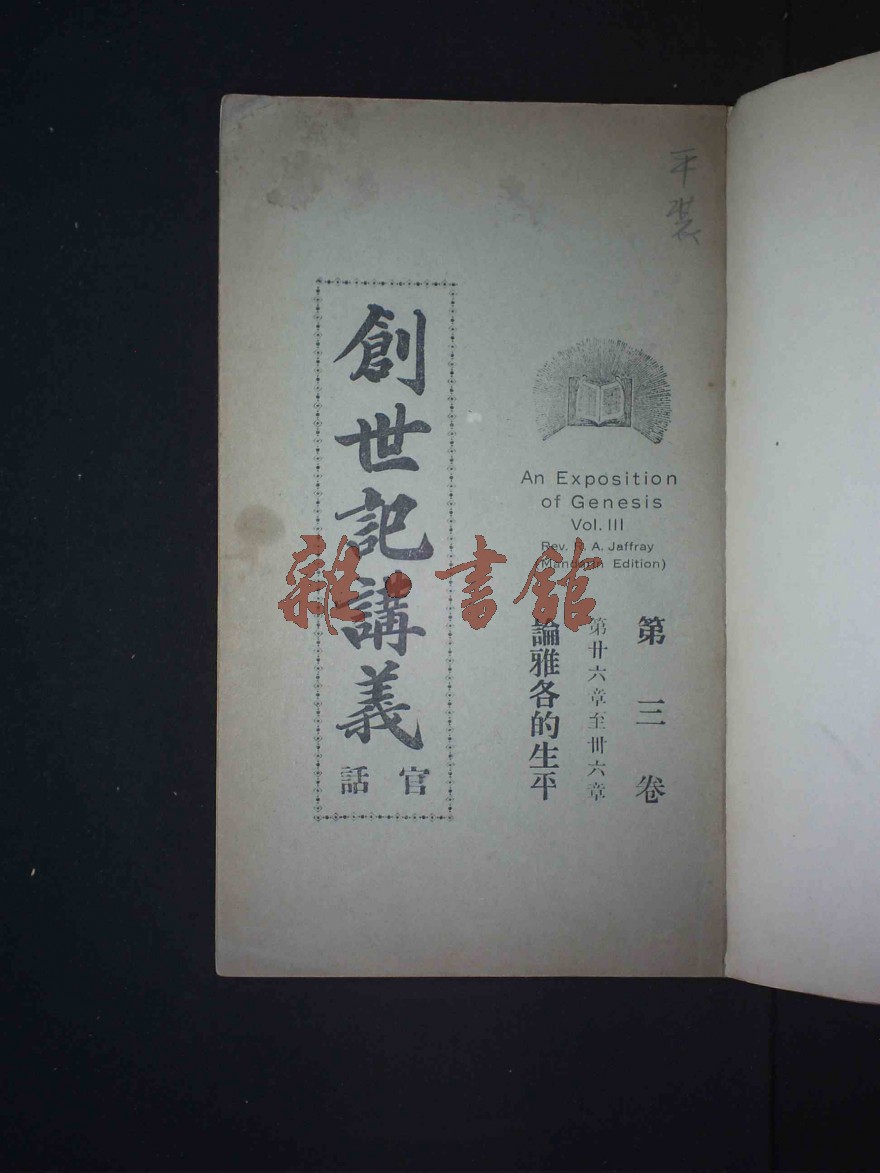 平裝
An Exposition
of Genesis
Vol. III
Rev. R. A. Jaffray
(Mandarin Edition)
第三卷
第廿六章至卅六章
論雅各的生平
創世記講義
官話
雜·書館